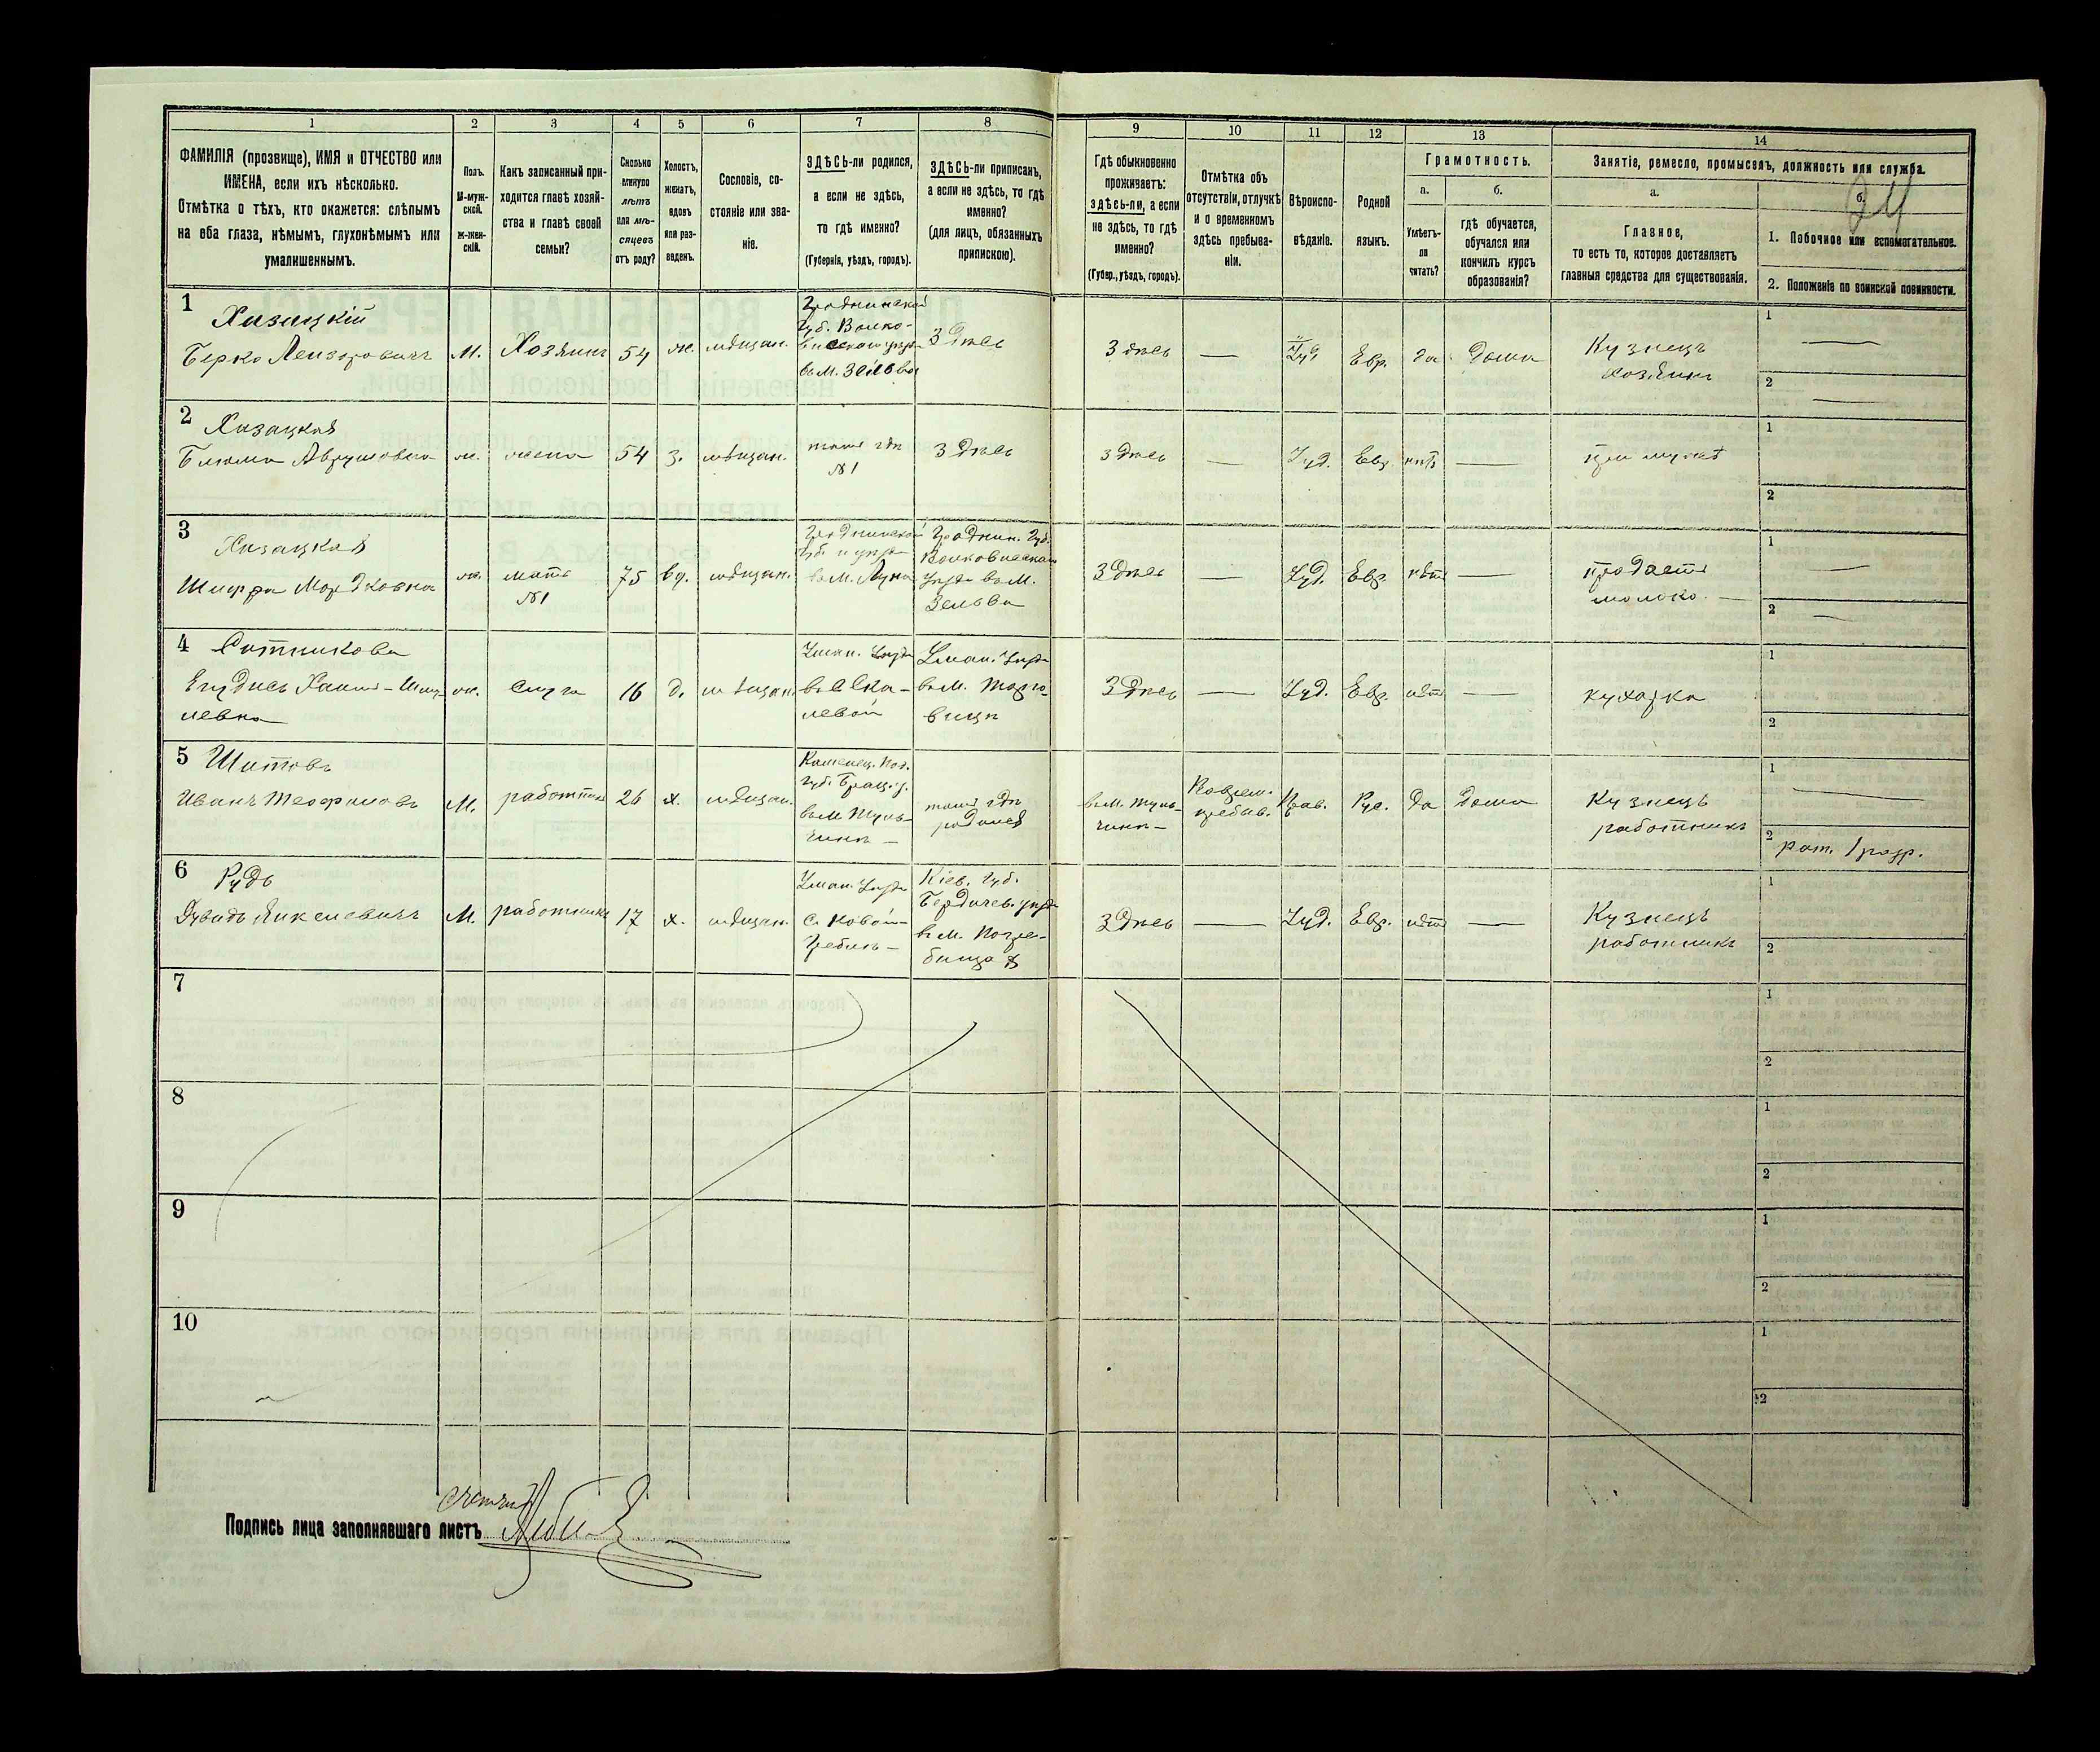 1 2 3 4 5 6 7 8 9 10 11 12 13 14
ФАМИЛІЯ (прозвище), ИМЯ и ОТЧЕСТВО или
ИМЕНА, если ихъ нѣсколько.
Отмѣтка о тѣхъ, кто окажется: слѣпымъ
на оба глаза, нѣмымъ, глухонѣмымъ или
умалишеннымъ.
Полъ.
М-муж-
ской.
Ж-жен-
скій.
Какъ записанный при-
ходится главѣ хозяй-
ства и главѣ своей
семьи?
Сколько
минуло
лѣтъ
или мѣ-
сяцевъ
отъ роду?
Холостъ,
женатъ,
вдовъ
или раз-
веденъ.
Сословіе, со-
стояніе или зва-
ніе.
ЗДѢСЬ-ли родился,
а если не здѣсь,
то гдѣ именно?
(Губернія, уѣздъ, городъ).
ЗДѢСЬ-ли приписанъ,
а если не здѣсь, то гдѣ
именно?
(для лицъ, обязанныхъ
припискою).
Гдѣ обыкновенно
проживаетъ:
здѣсь-ли, а если
не здѣсь, то гдѣ
именно?
(Губер., уѣздъ, городъ).
Отмѣтка объ
отсутствіи, отлучкѣ
и о временномъ
здѣсь пребыва-
ніи.
Вѣроиспо-
вѣданіе.
Родной
языкъ.
Грамотность.
а.
Умѣетъ-
ли
читать?
б.
гдѣ обучается,
обучался или
кончилъ курсъ
образованія?
Занятіе, ремесло, промыселъ, должность или служба.
а.
Главное,
то есть то, которое доставляетъ
главныя средства для существованія.
б.
24
1. Побочное или вспомогательное.
2. Положеніе по воинской повинности.
1
Хизацкій
Берко Лейзоровичъ
М.
Хозяинъ
54
ж.
мѣщан.
Гродненской
Губ. Волко-
въ М. Зельва
Здѣсь
Здѣсь
—
Іуд.
Евр.
да
дома
Кузнецъ
хозяинъ
1 —
2 —
2
Хизацкая
Блюма Аврумовна
ж.
жена
54
з.
мѣщан.
тамъ гдѣ
№1
Здѣсь
Здѣсь
—
Іуд.
Евр.
нѣтъ
—
при мужѣ
1
2
3
Хизацкая
Шифра Мордковна
ж.
мать
№1
75
вд.
мѣщан.
Гродненской
Губ. и уѣзда
въ М. Лунна
Гроднен. Губ.
уѣзда въ М.
Зельва
Здѣсь
—
Іуд.
Евр.
нѣтъ
—
продаетъ
молоко. —
1 —
2 —
4
Ситникова
ж.
слуга
16
д.
мѣщан.
Уман. Уѣзда
Уман. Уѣзда
въ М. Торго-
вицѣ
Здѣсь
—
Іуд.
Евр.
нѣтъ
—
кухарка
1
2
5
Шитовъ
Иванъ Теофиловъ
М.
работникъ
26
х.
мѣщан.
Каменец. Под.
губ. Брац. у.
въ М. Туль-
чинѣ —
тамъ гдѣ
родился
въ М. Туль-
чинѣ —
Времен.
пребыв.
Прав.
Рус.
да
дома
Кузнецъ
работникъ
1 —
2 рат. 1 разр.
6
Рудь
Дувидъ Янкелевичъ
М.
работникъ
17
х.
мѣщан.
Уман. Уѣзда
Гребель —
Кіев. Губ.
Бердичев. уѣзда
въ М. Погре-
бища
Здѣсь
—
Іуд.
Евр.
нѣтъ
—
Кузнецъ
работникъ
1
2
7
1
2
8
1
2
9
1
2
10
1
2
Подпись лица заполнявшаго листъ